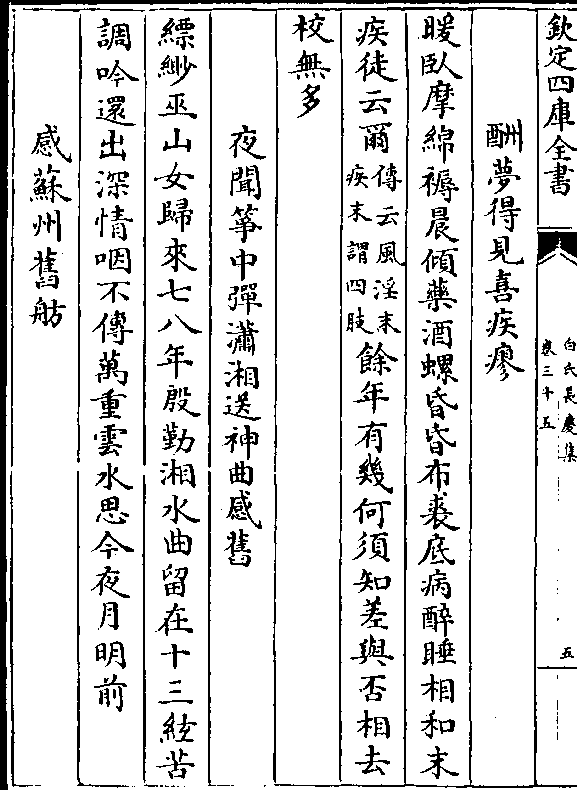 欽定四庫全書
白氏長慶集
卷三十五
五
酬夢得見喜疾瘳
暖臥摩綿褥晨傾藥酒螺昏昏布裘底病醉睡相和末
疾徒云爾傳云風淫末疾末謂四肢餘年有幾何須知差與否相去
校無多
夜聞箏中彈瀟湘送神曲感舊
縹緲巫山女歸來七八年殷勤湘水曲留在十三絃苦
調吟還出深情咽不傳萬重雲水思今夜月明前
感蘇州舊舫